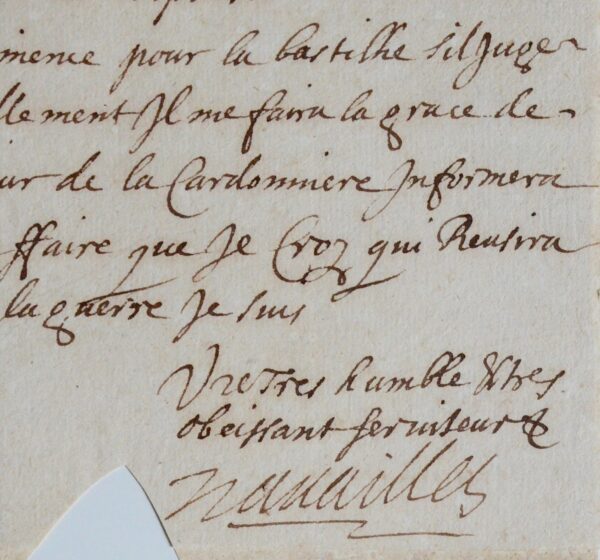 mence pour la bastilhe sil Juge
llement Il me faira la grace de
ur de la Cardonniere Informera
ffaire que Je Croy qui Reusira
la guerre Je suis
Vre Tres humble & tres
obeissant serviteur &
Navailles